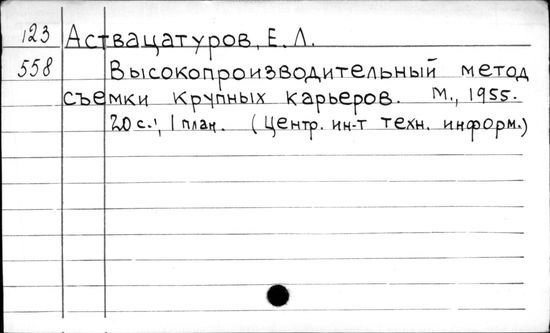 123 Аствацатуров, Е. Л.
558 Высокопроизводительный метод
съемки крупных карьеров. М., 1955.
20 с., 1 план. (Центр. ин-т техн. информ.)